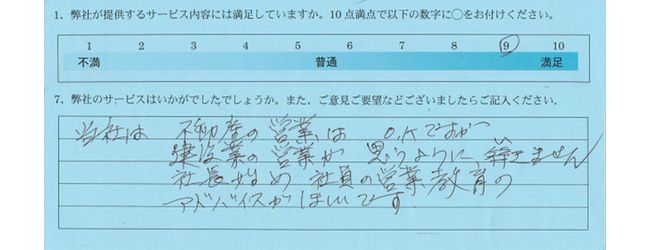 1、弊社が提供するサービス内容には満足していますか。10点満点で以下の数字に○をお付けください。
1 2 3 4 5 6 7 8 9 10
不満 普通 満足
7、弊社のサービスはいかがでしたでしょうか。また、ご意見ご要望などございましたらご記入ください。
当社は 不動産の営業は O.Kですが
建設業の営業が 思うように ません
社長始め 社員の営業教育の
アドバイスがほしいです